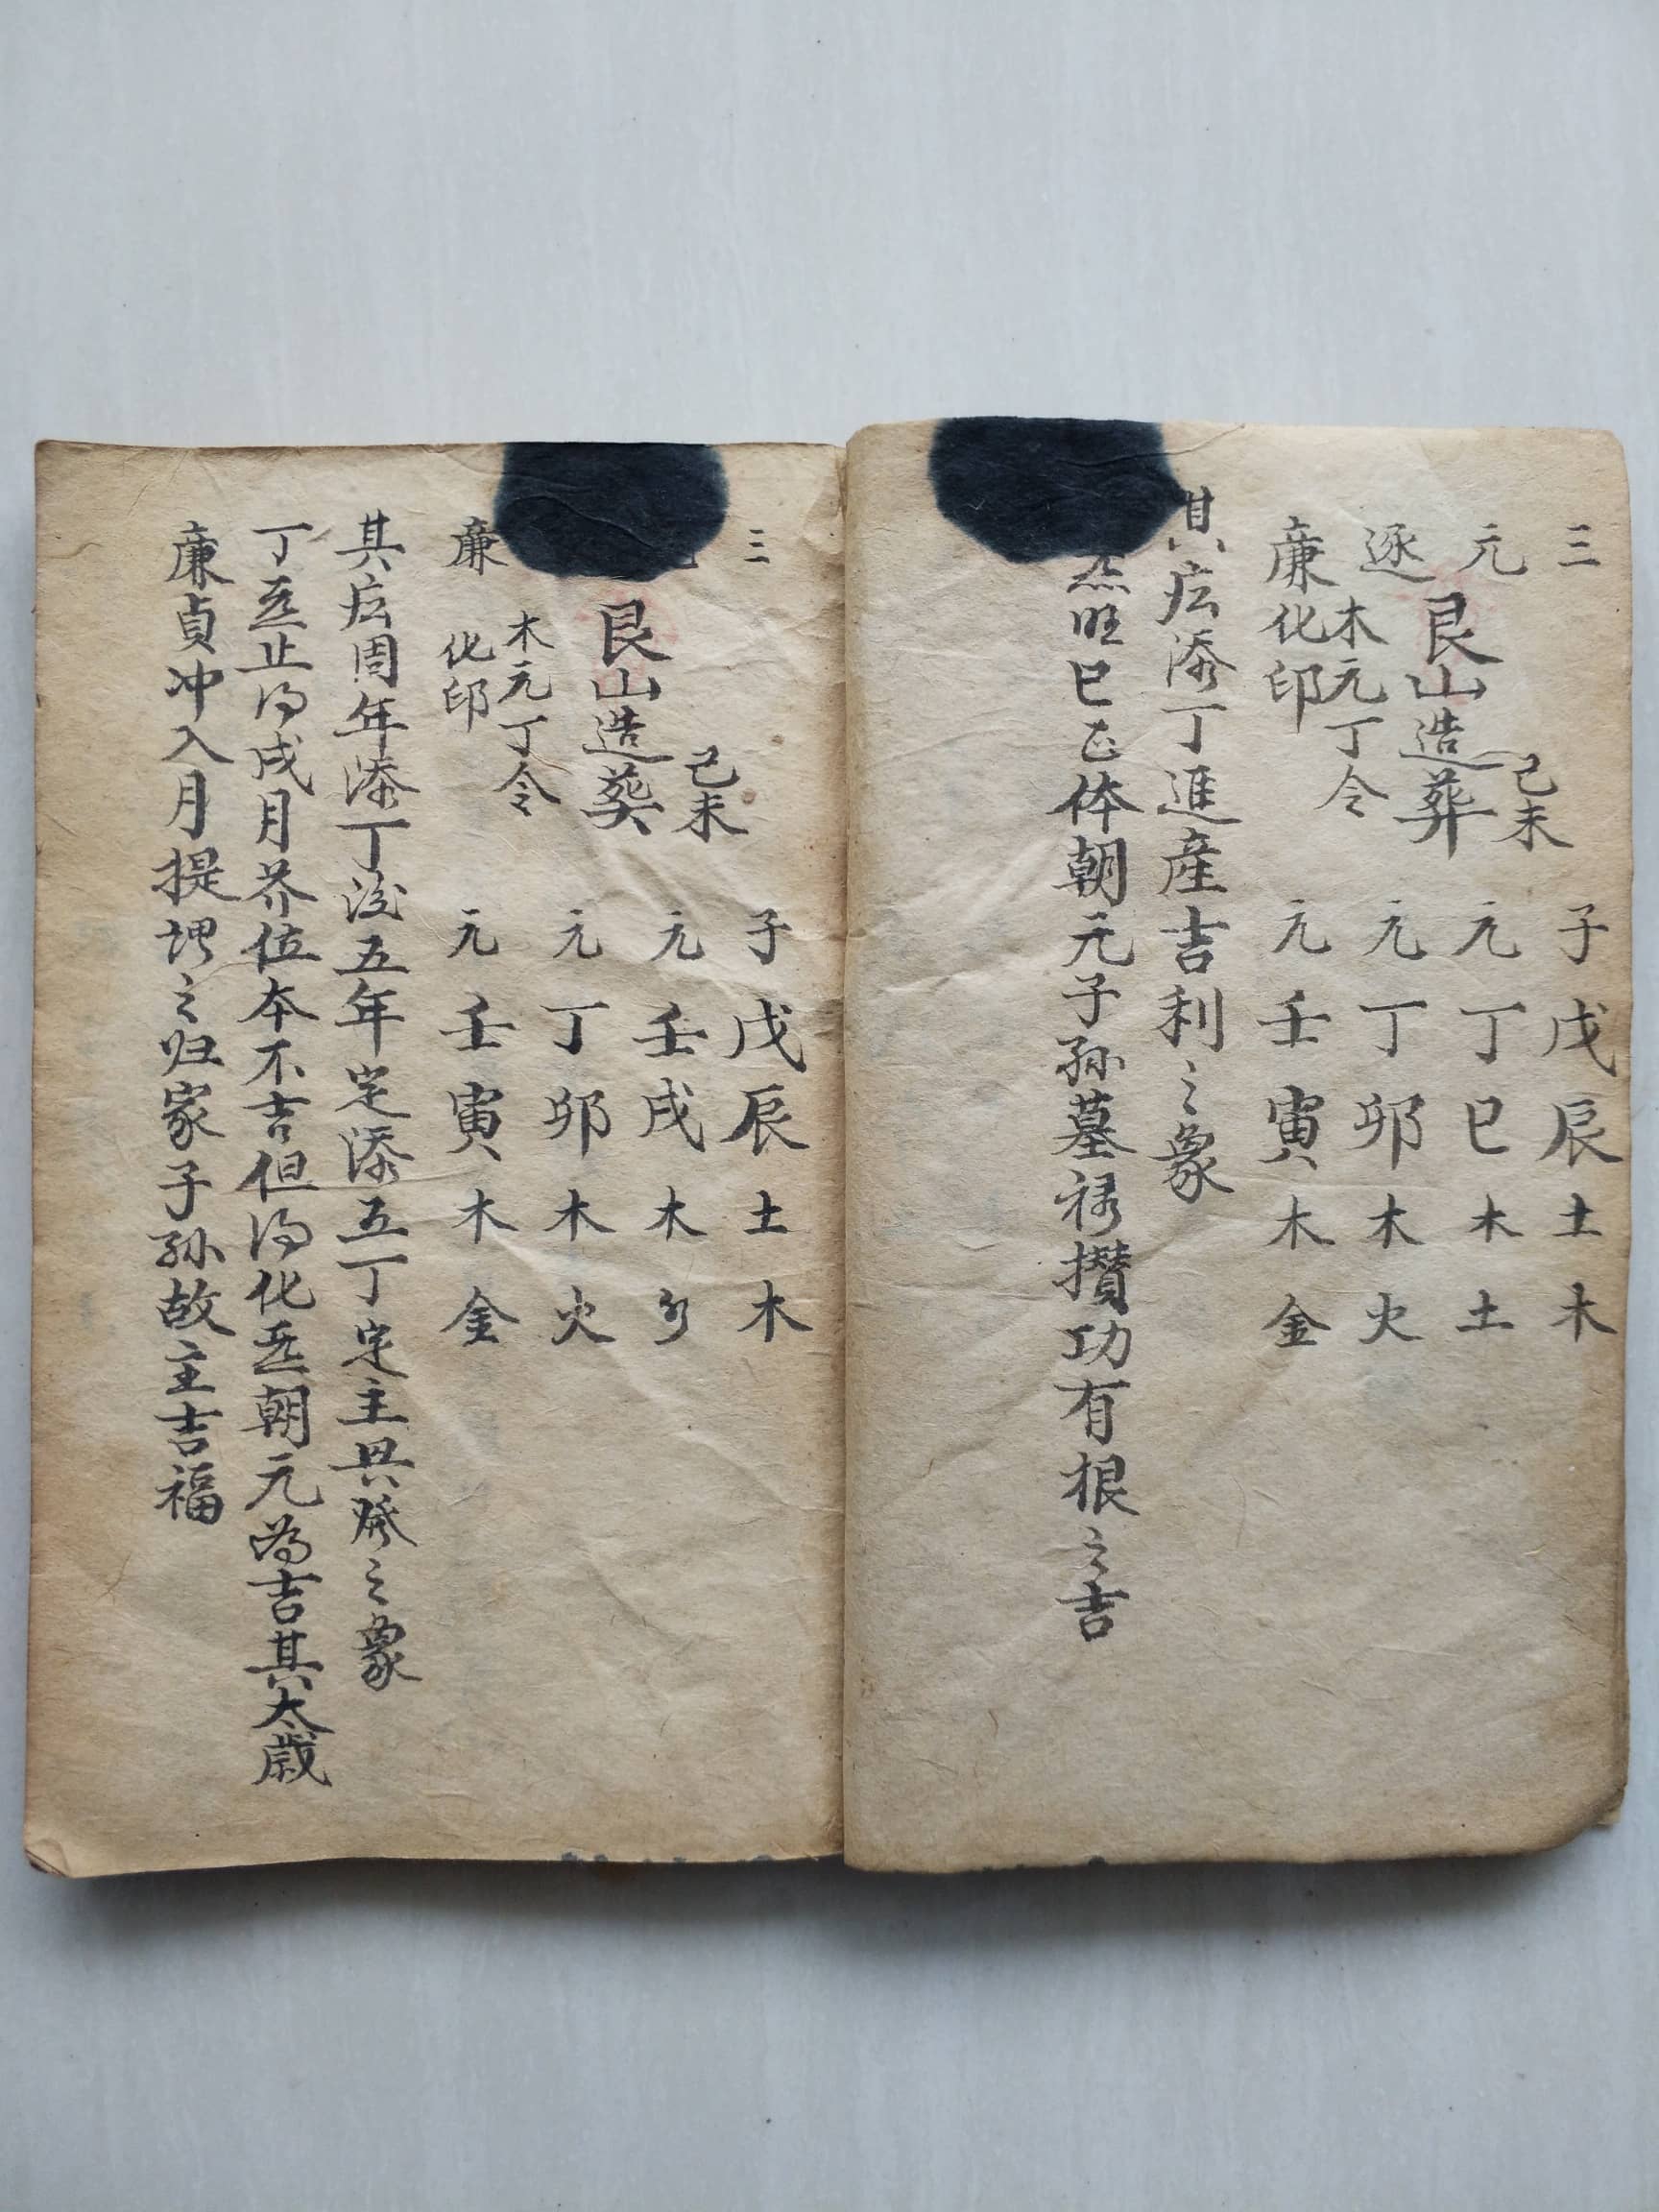 三 己未 子戊辰土木
元 艮山造葬 元丁巳木土
逐 木元丁令 元丁卯木火
廉 化印 元壬寅木金
其应添丁進産吉利之象
旺巳 体朝元子孙墓禄攢功有根之吉
三 己未 子戊辰土木
艮山造葵 元壬戌木
木元丁令 元丁卯木火
廉 化印 元壬寅木金
其应周年添丁後五年定添五丁定主興發之象
丁 止得戌月 位本不吉但得化 朝元為吉其太歲
廉貞冲入月提 之归家子孙故主吉福